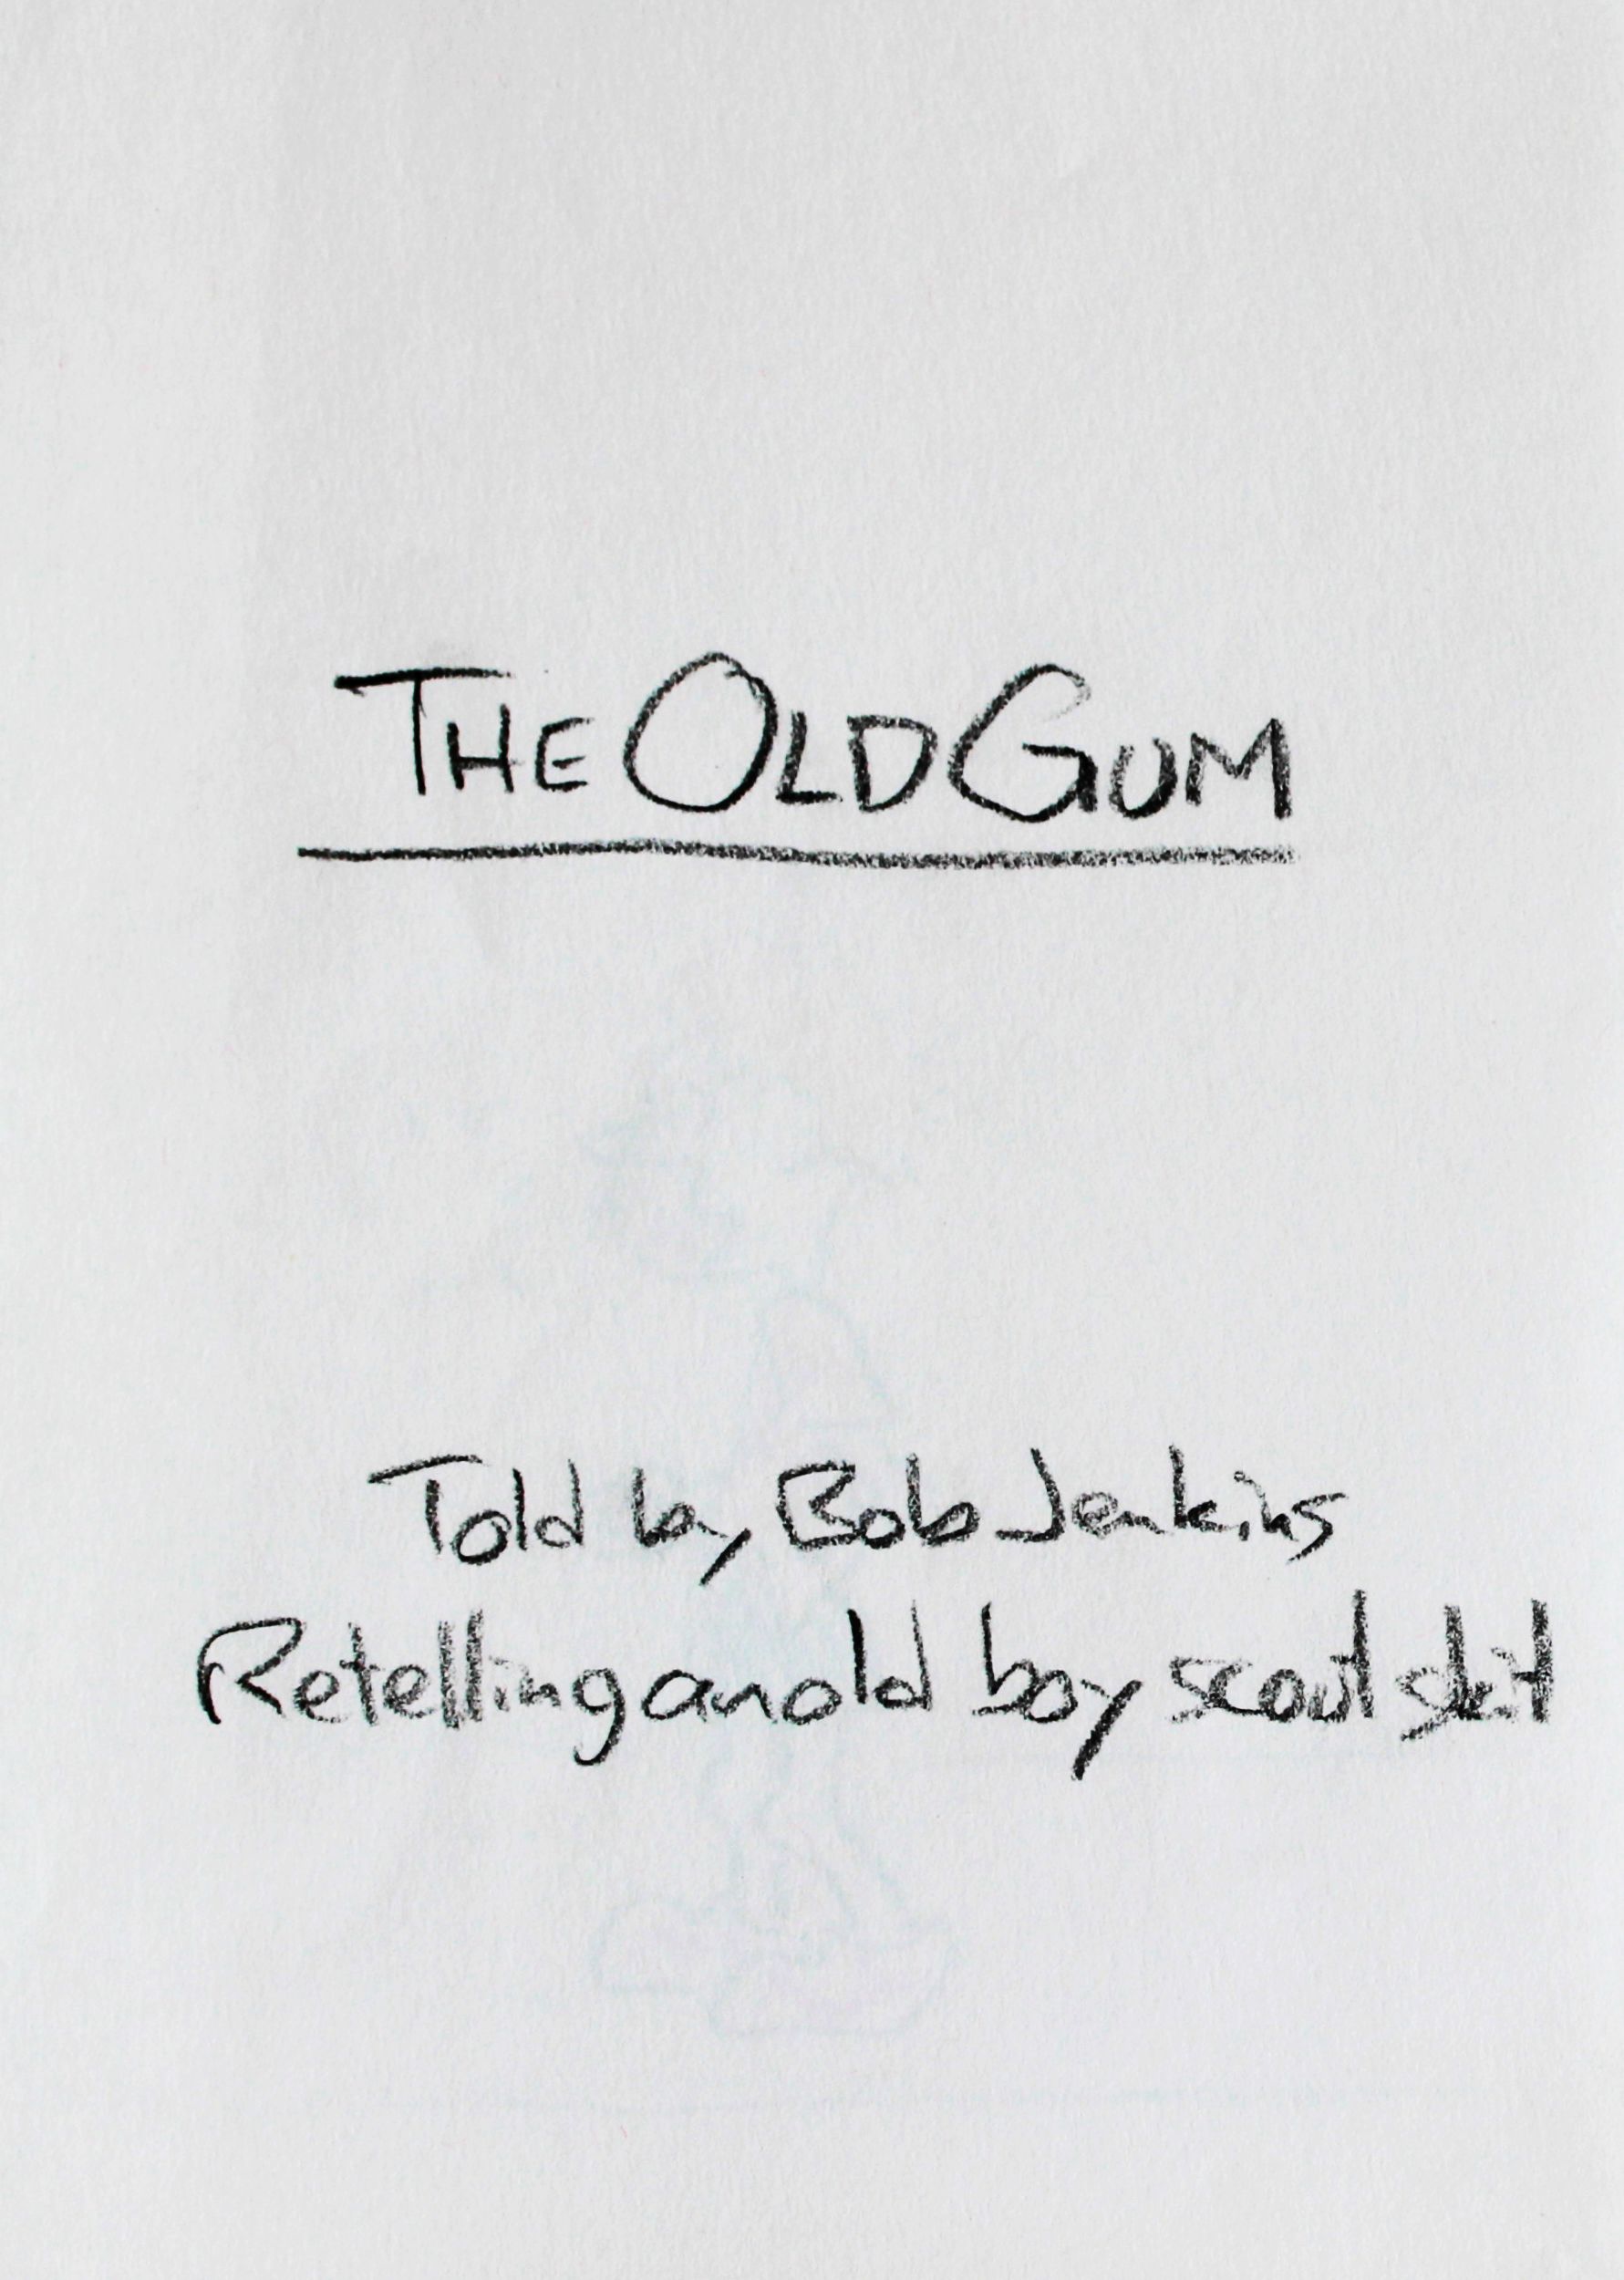 THE OLD GUM
Told by Bob Jenkins
Retelling an old boy scout skit